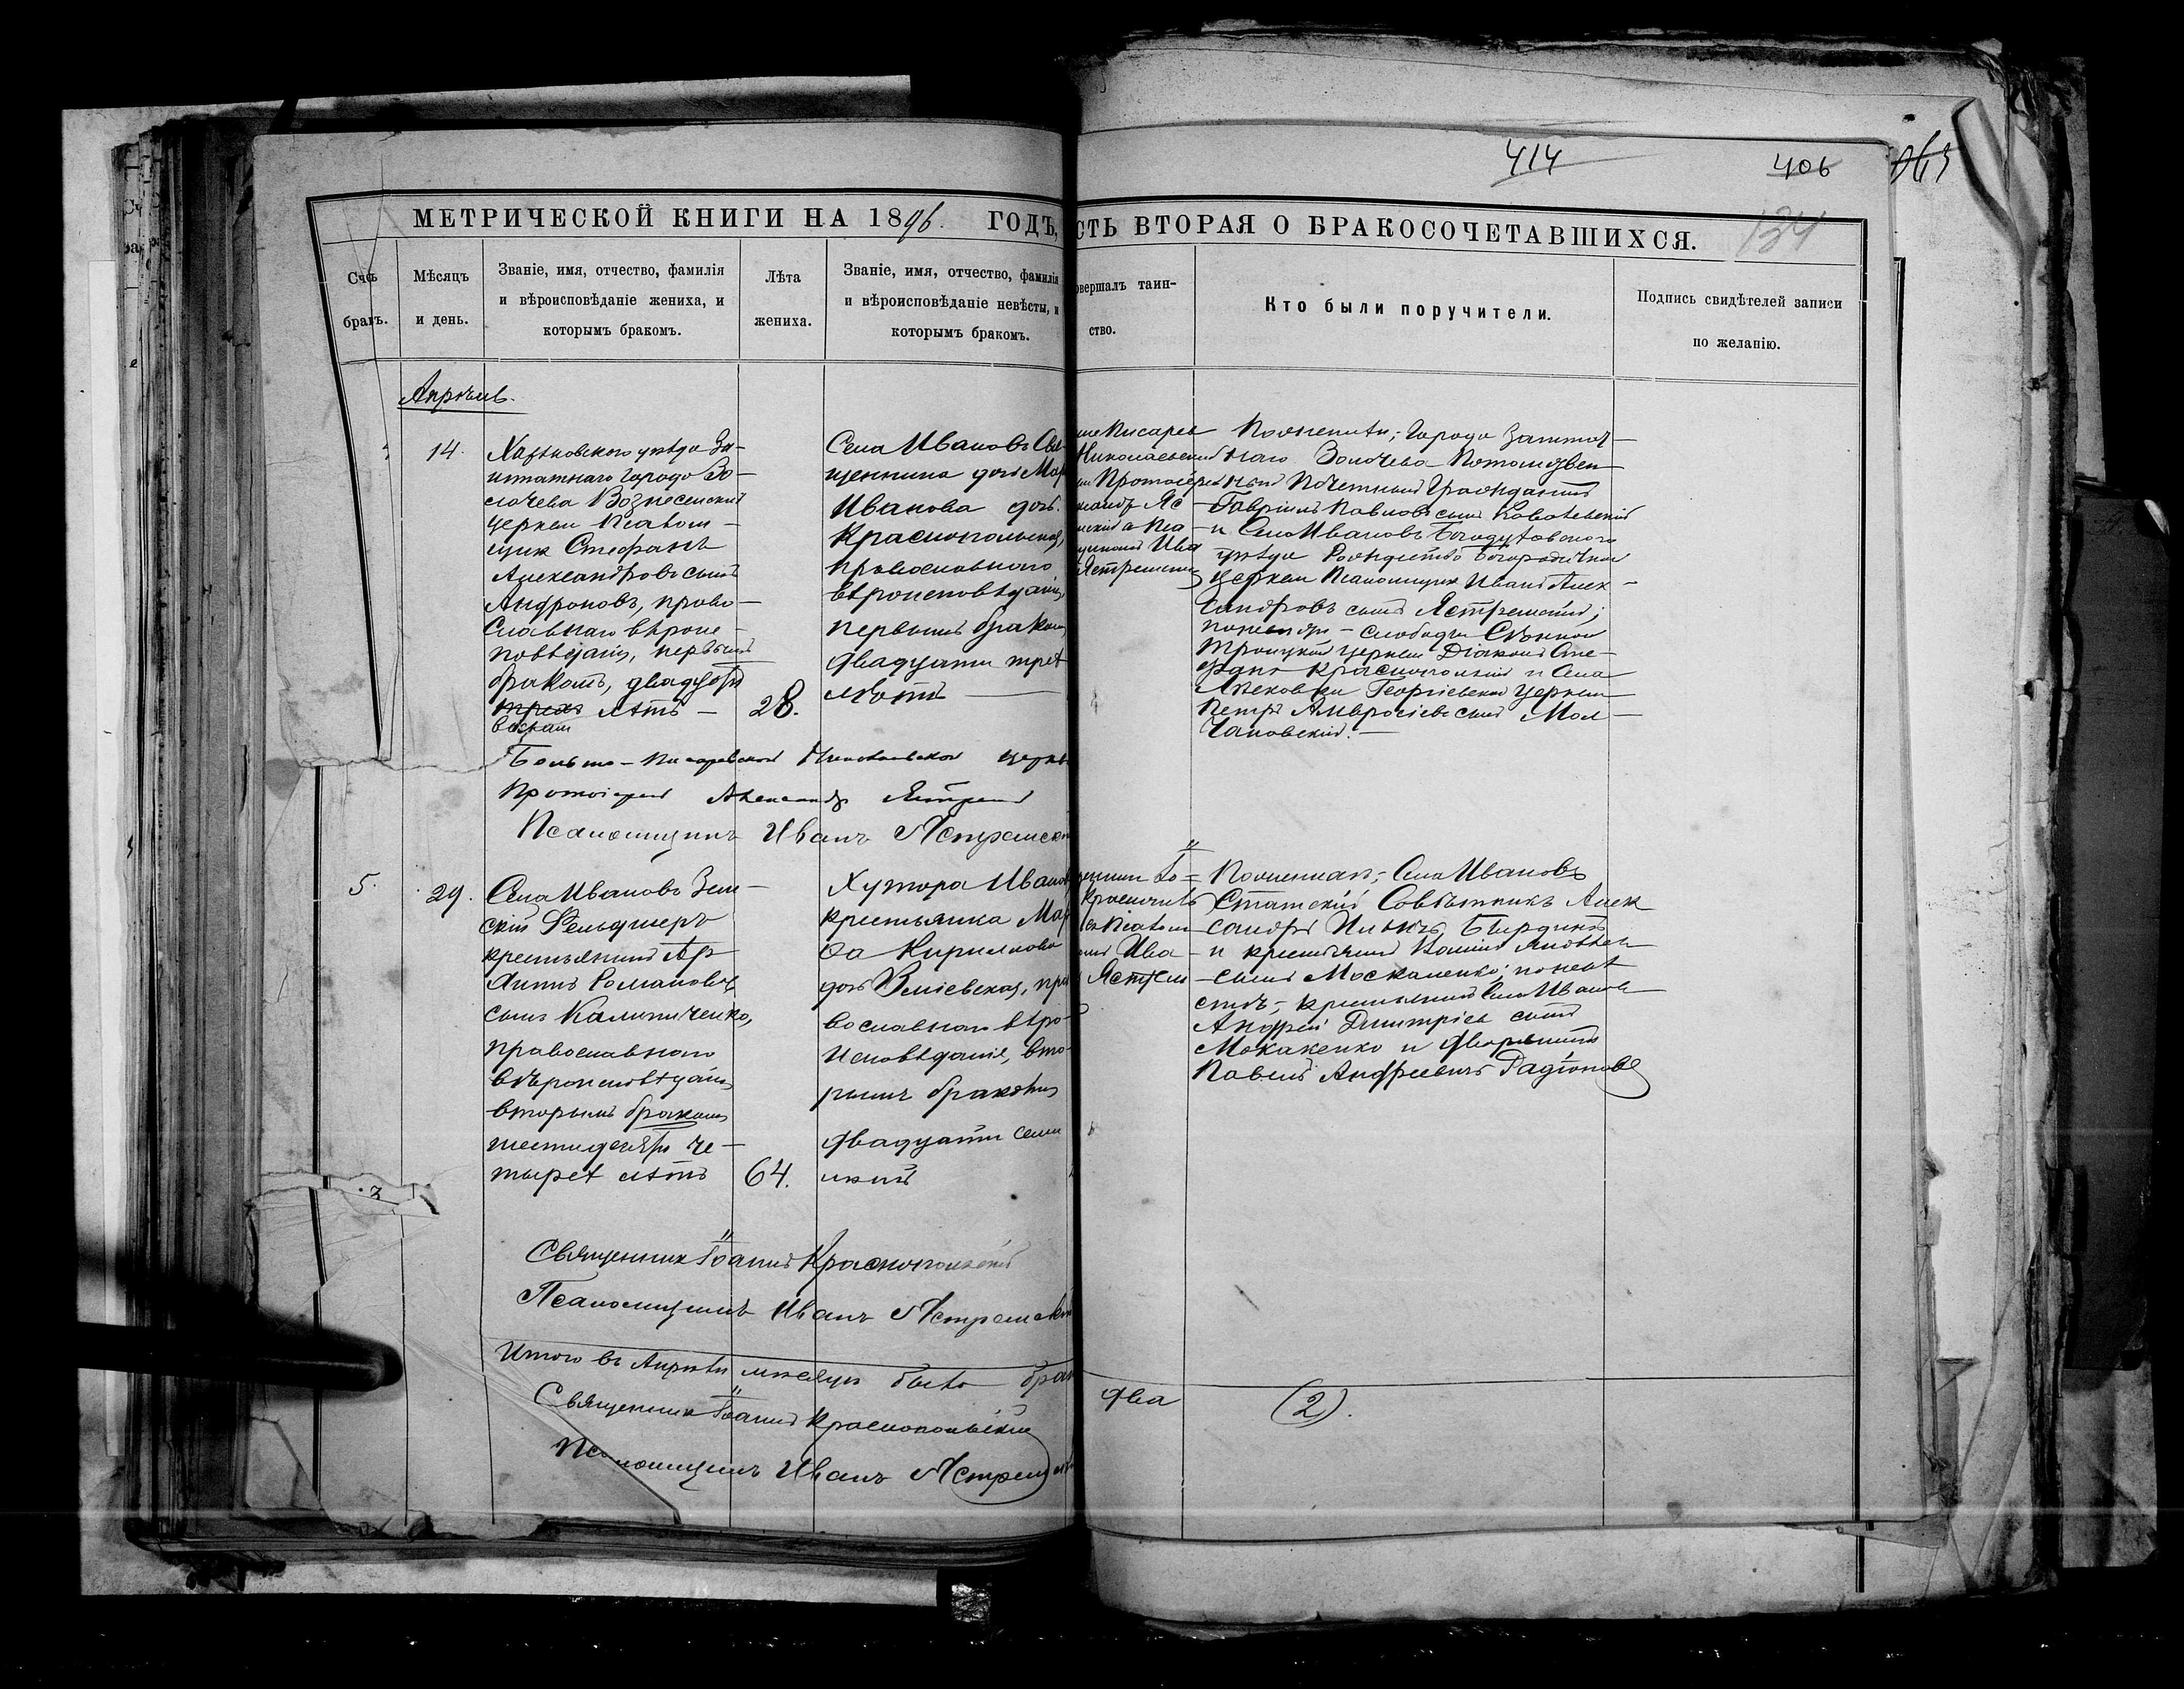 414
406
134
МЕТРИЧЕСКОЙ КНИГИ НА 1896. ГОДЪ,
СТЬ ВТОРАЯ О БРАКОСОЧЕТАВШИХСЯ.
Счетъ
бракъ.
Мѣсяцъ
и день.
Званіе, имя, отчество, фамилія
и вѣроисповѣданіе жениха, и
которымъ бракомъ.
Лѣта
жениха.
Званіе, имя, отчество, фамилія
и вѣроисповѣданіе невѣсты, и
которымъ бракомъ.
овершалъ таин-
ство.
Кто были поручители.
Подпись свидѣтелей записи
по желанію.
Апрѣль.
14.
Харьковскаго уѣзда За-
штатнаго города Зо-
лочева Вознесенской
церкви Псалом-
щик Стефанъ
Александровъ сынъ
Андроновъ, право-
славнаго вѣроис-
повѣданія, первымъ
бракомъ, двадцати
трехъ лѣтъ
восьми
28.
Села Ивановъ Свя-
щенника дочь Мар
Иванова дочь
Краснопольская,
православнаго
вѣроисповѣданія,
первымъ бракомъ
двадцати трех
лѣтъ
Писарев
Николаевской
Протоіерей
Яс
Ива
Ястремскій
По женихѣ; Города Заштат-
наго Золочева Потомствен-
ный Почетный Гражданинъ
Гавріилъ Павловъ сынъ Ковалевскій
и Села Ивановъ Богодуховскаго
уѣзда Рождество Богородичной
церкви Псаломщик Иванъ Алек-
сандровъ сынъ Ястремскій;
по невѣстѣ - слободы Сѣнной
Троицкой церкви Діаконъ Сте-
фанъ Краснопольскій и Села
Георгіевской церкви
Петръ Амвросіевъ сынъ Мол-
чановскій.
Больше-Писаревской Николаевской церкв
Протоіерей Александръ Ястремскій
Псаломщикъ Иванъ Ястремскі
5.
29.
Села Ивановъ Зем-
скій Фельдшеръ
крестьянинъ Ар-
хипъ Романовъ
сынъ Калиниченко,
православнаго
вѣроисповѣданія,
вторымъ бракомъ
шестидесяти че-
тырех лѣтъ
64.
Хутора Иванов
крестьянка Мар
ѳа Кириллова
дочь Зміевская, пра
вославнаго вѣро-
исповѣданія, вто-
рымъ бракомъ
двадцати семи
лѣтъ
щенник Іо-
Краснопольс
Псалом
Ива-
Ястрем
По женихѣ; Села Ивановъ
Статскій Совѣтникъ Алек
сандръ Ильичъ Бырдинъ
и крестьянинъ
сынъ Москаленко; по невѣ
стѣ; крестьянинъ Села Ивановъ
Андрей Дмитріев сынъ
Макаренко и дворянинъ
Павелъ Андреевичъ Радіоновъ
Священник Іоаннъ Краснопольскій
Псаломщикъ Иванъ Ястремскі
Итого въ Апрѣлѣ мѣсяцѣ было брак
два (2).
Священник Іоаннъ Краснопольскій
Псаломщикъ Иванъ Ястремск